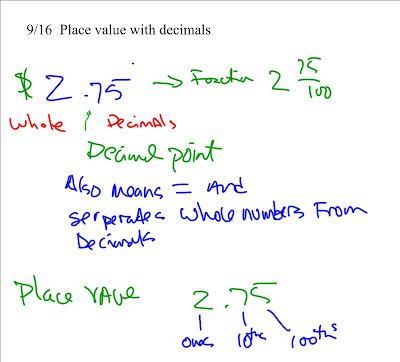 9/16 Place value with decimals
$ 2.75 → Fraction 2 75/100
Whole ↑ Decimals
Decimal point
Also means = And
serperates whole numbers From
Decimals
Place Value 2.75
ones 10ths 100ths